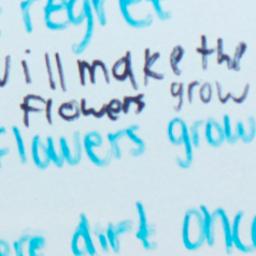 regret
will make the
flowers grow
flowers grow
ere dirt onc